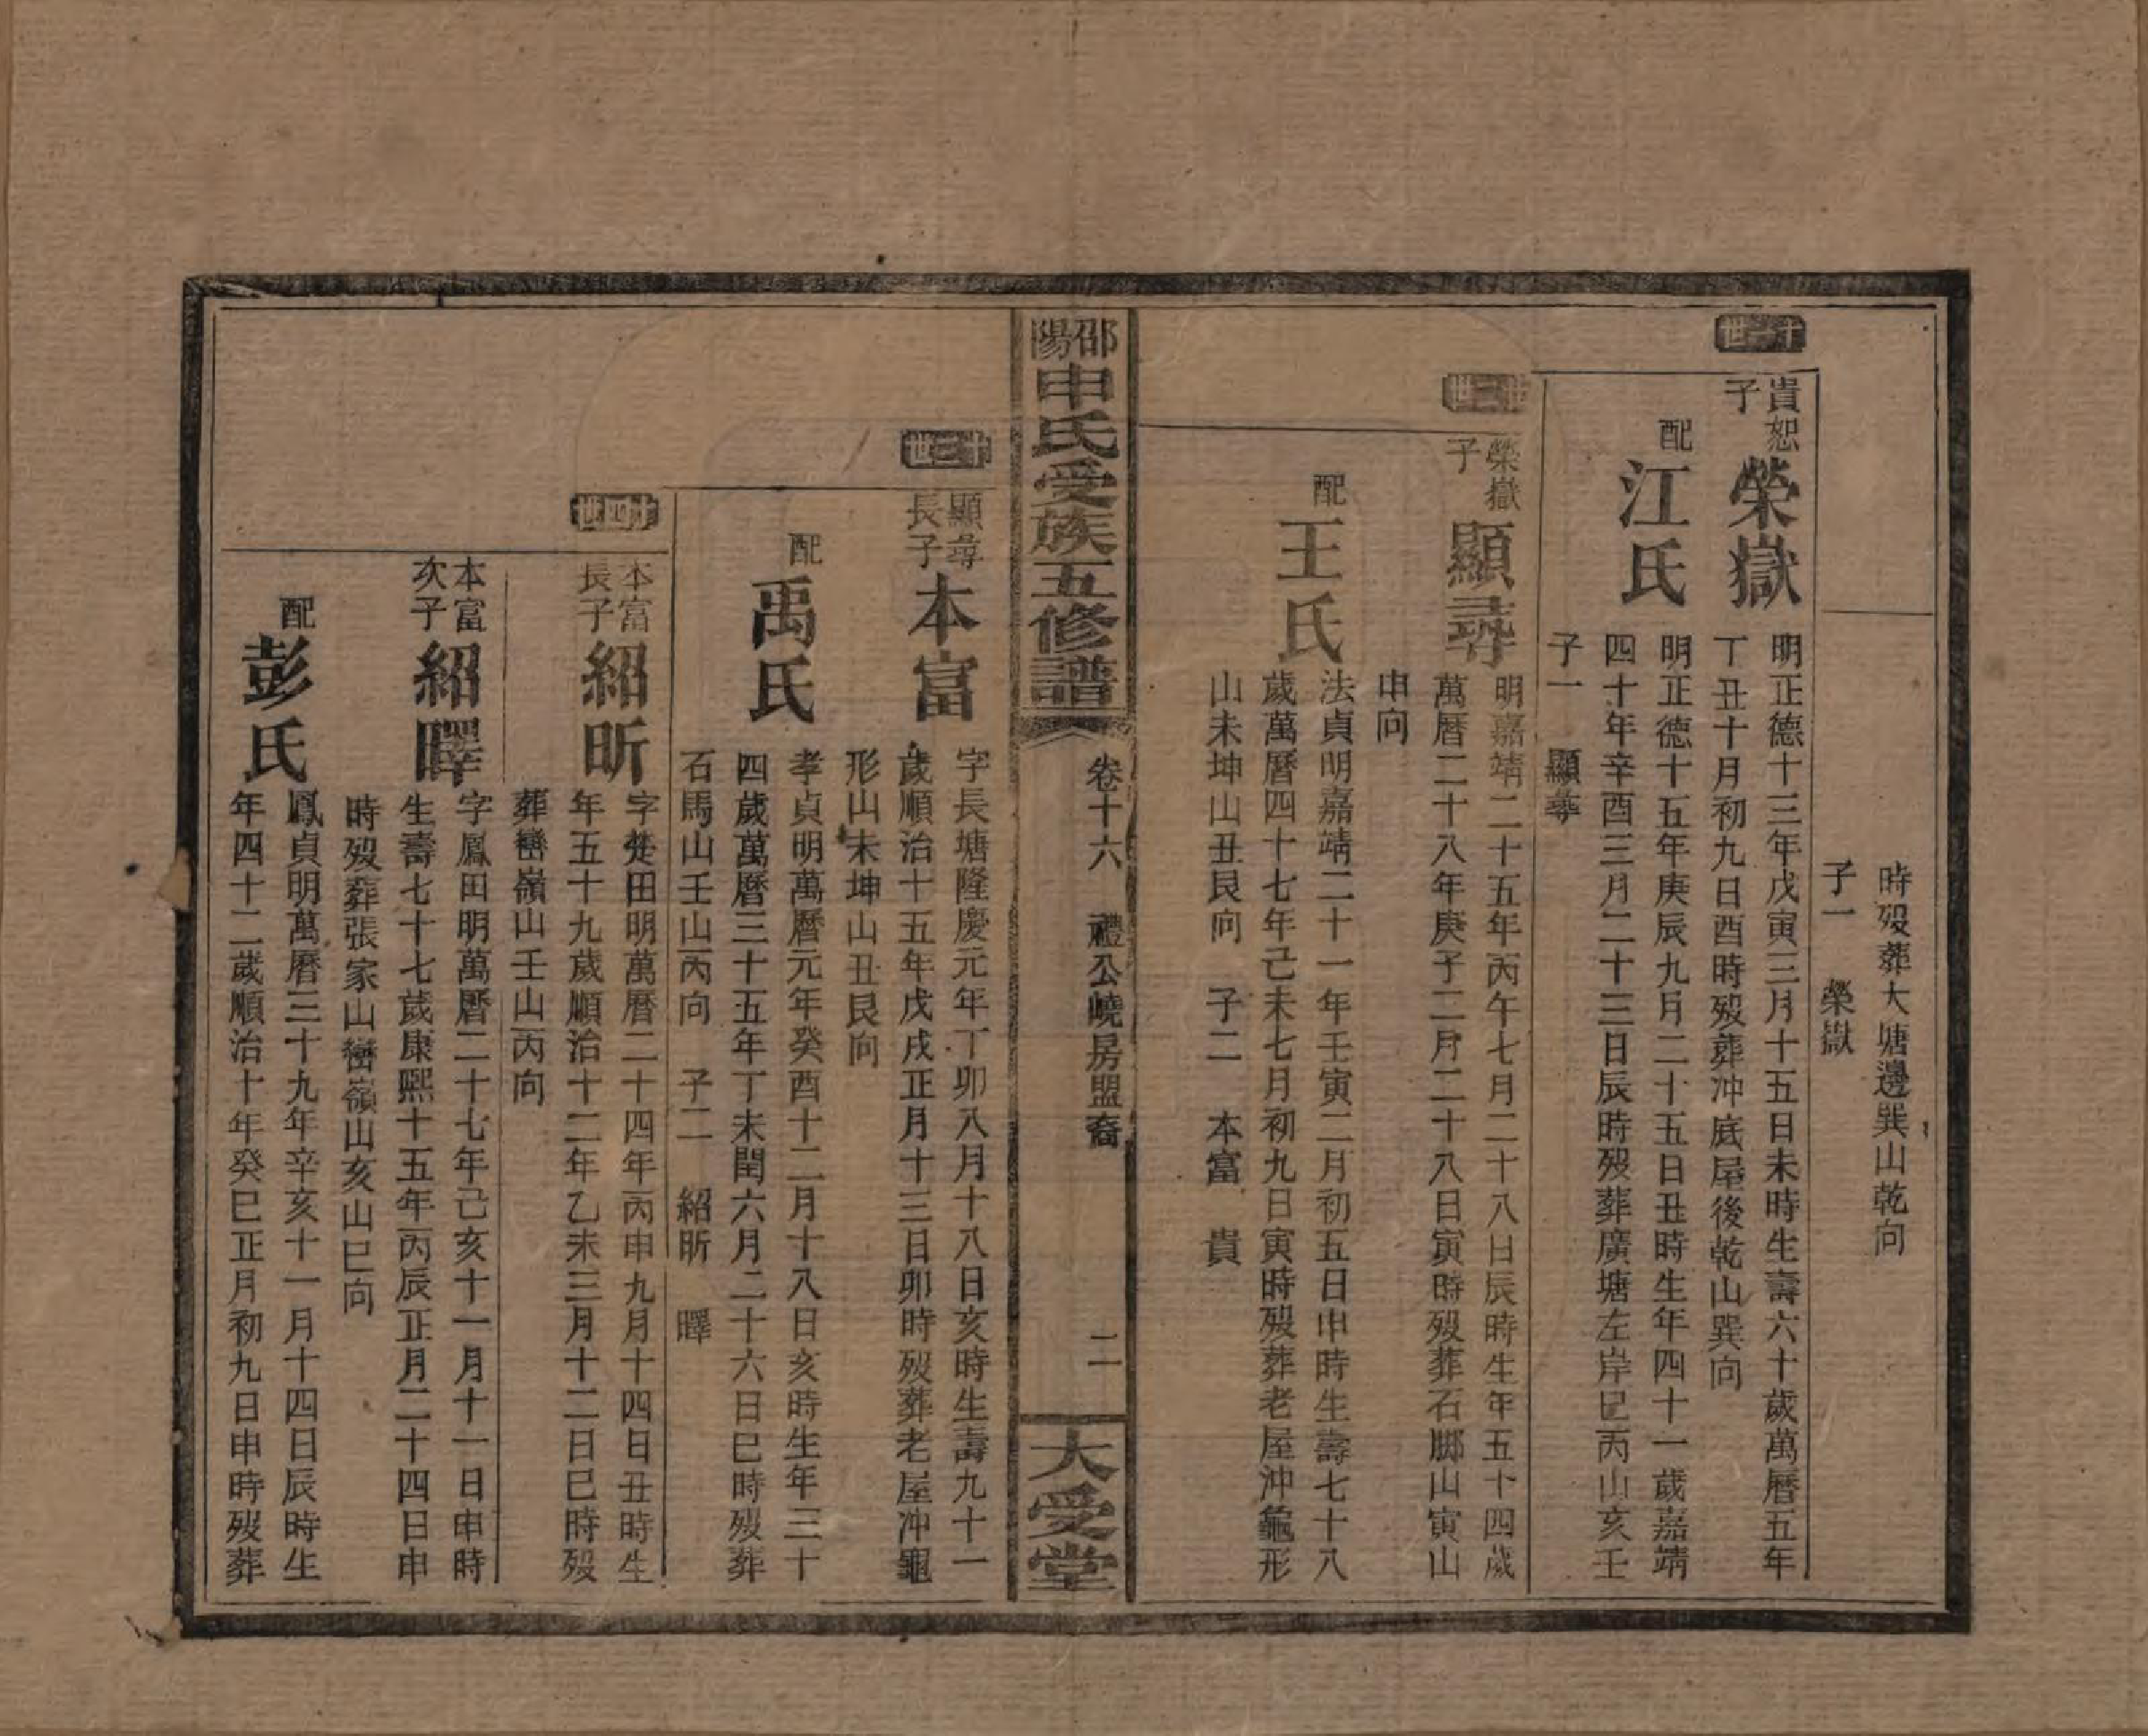 時歿葬大塘邊巽山乾向
子一　榮嶽
十一世
貴恕子
榮嶽
明正德十三年戊寅三月十五日未時生壽六十歲萬曆五年
丁丑十月初九日酉時歿葬冲底屋後乾山巽向
配
江氏
明正德十五年庚辰九月二十五日丑時生年四十一歲嘉靖
四十年辛酉三月二十三日辰時歿葬廣塘左岸巳丙山亥壬
子一　顯㝷
十二世
榮嶽子
顯㝷
明嘉靖二十五年丙午七月二十八日辰時生年五十四歲
萬曆二十八年庚子二月二十八日寅時歿葬石腳山寅山
申向
配
王氏
法貞明嘉靖二十一年壬寅二月初五日申時生壽七十八
歲萬曆四十七年己未七月初九日寅時歿葬老屋沖龜形
山未坤山丑艮向　子二　本富　貴
邵陽申氏受族五修譜
卷十六　禮公嶢房盟裔
二
大受堂
十三世
顯㝷長子
本富
字長塘隆慶元年丁卯八月十八日亥時生壽九十一
歲順治十五年戊戌正月十三日卯時歿葬老屋冲龜
形山未坤山丑艮向
配
禹氏
孝貞明萬曆元年癸酉十二月十八日亥時生年三十
四歲萬曆三十五年丁未閏六月二十六日巳時歿葬
石馬山壬山丙向　子二　紹昕　曎
十四世
本富長子
紹昕
字楚田明萬曆二十四年丙申九月十四日丑時生
年五十九歲順治十二年乙未三月十二日巳時歿
葬巒嶺山壬山丙向
本富次子
紹曎
字鳳田明萬曆二十七年己亥十一月十一日申時
生壽七十七歲康熙十五年丙辰正月二十四日申
時歿葬張家山巒嶺山亥山巳向
配
彭氏
鳳貞明萬曆三十九年辛亥十一月十四日辰時生
年四十二歲順治十年癸巳正月初九日申時歿葬